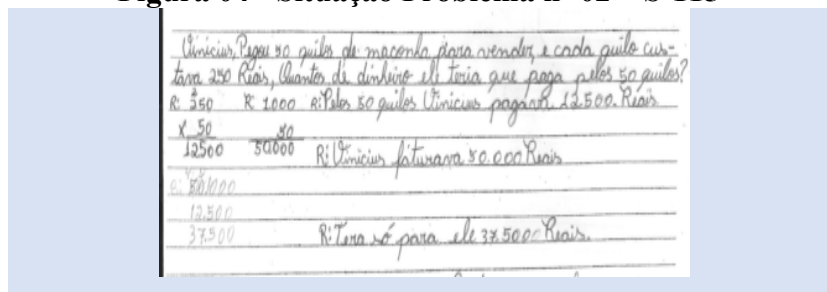 Vinicius, Pegou 50 quilos de maconha para vender, e cada quilo cus-
tava 250 Reais, Quantos de dinheiro ele teria que paga pelos 50 quilos?
R: 250 R 1000 R: Pelos 50 quilos Vinicius pagava 12.500. Reais
X 50 50
12500 50000 R: Vinicius faturava 50.000 Reais
R: 50.000
12.500
37.500 R: Tera só para ele 37.500 Reais.